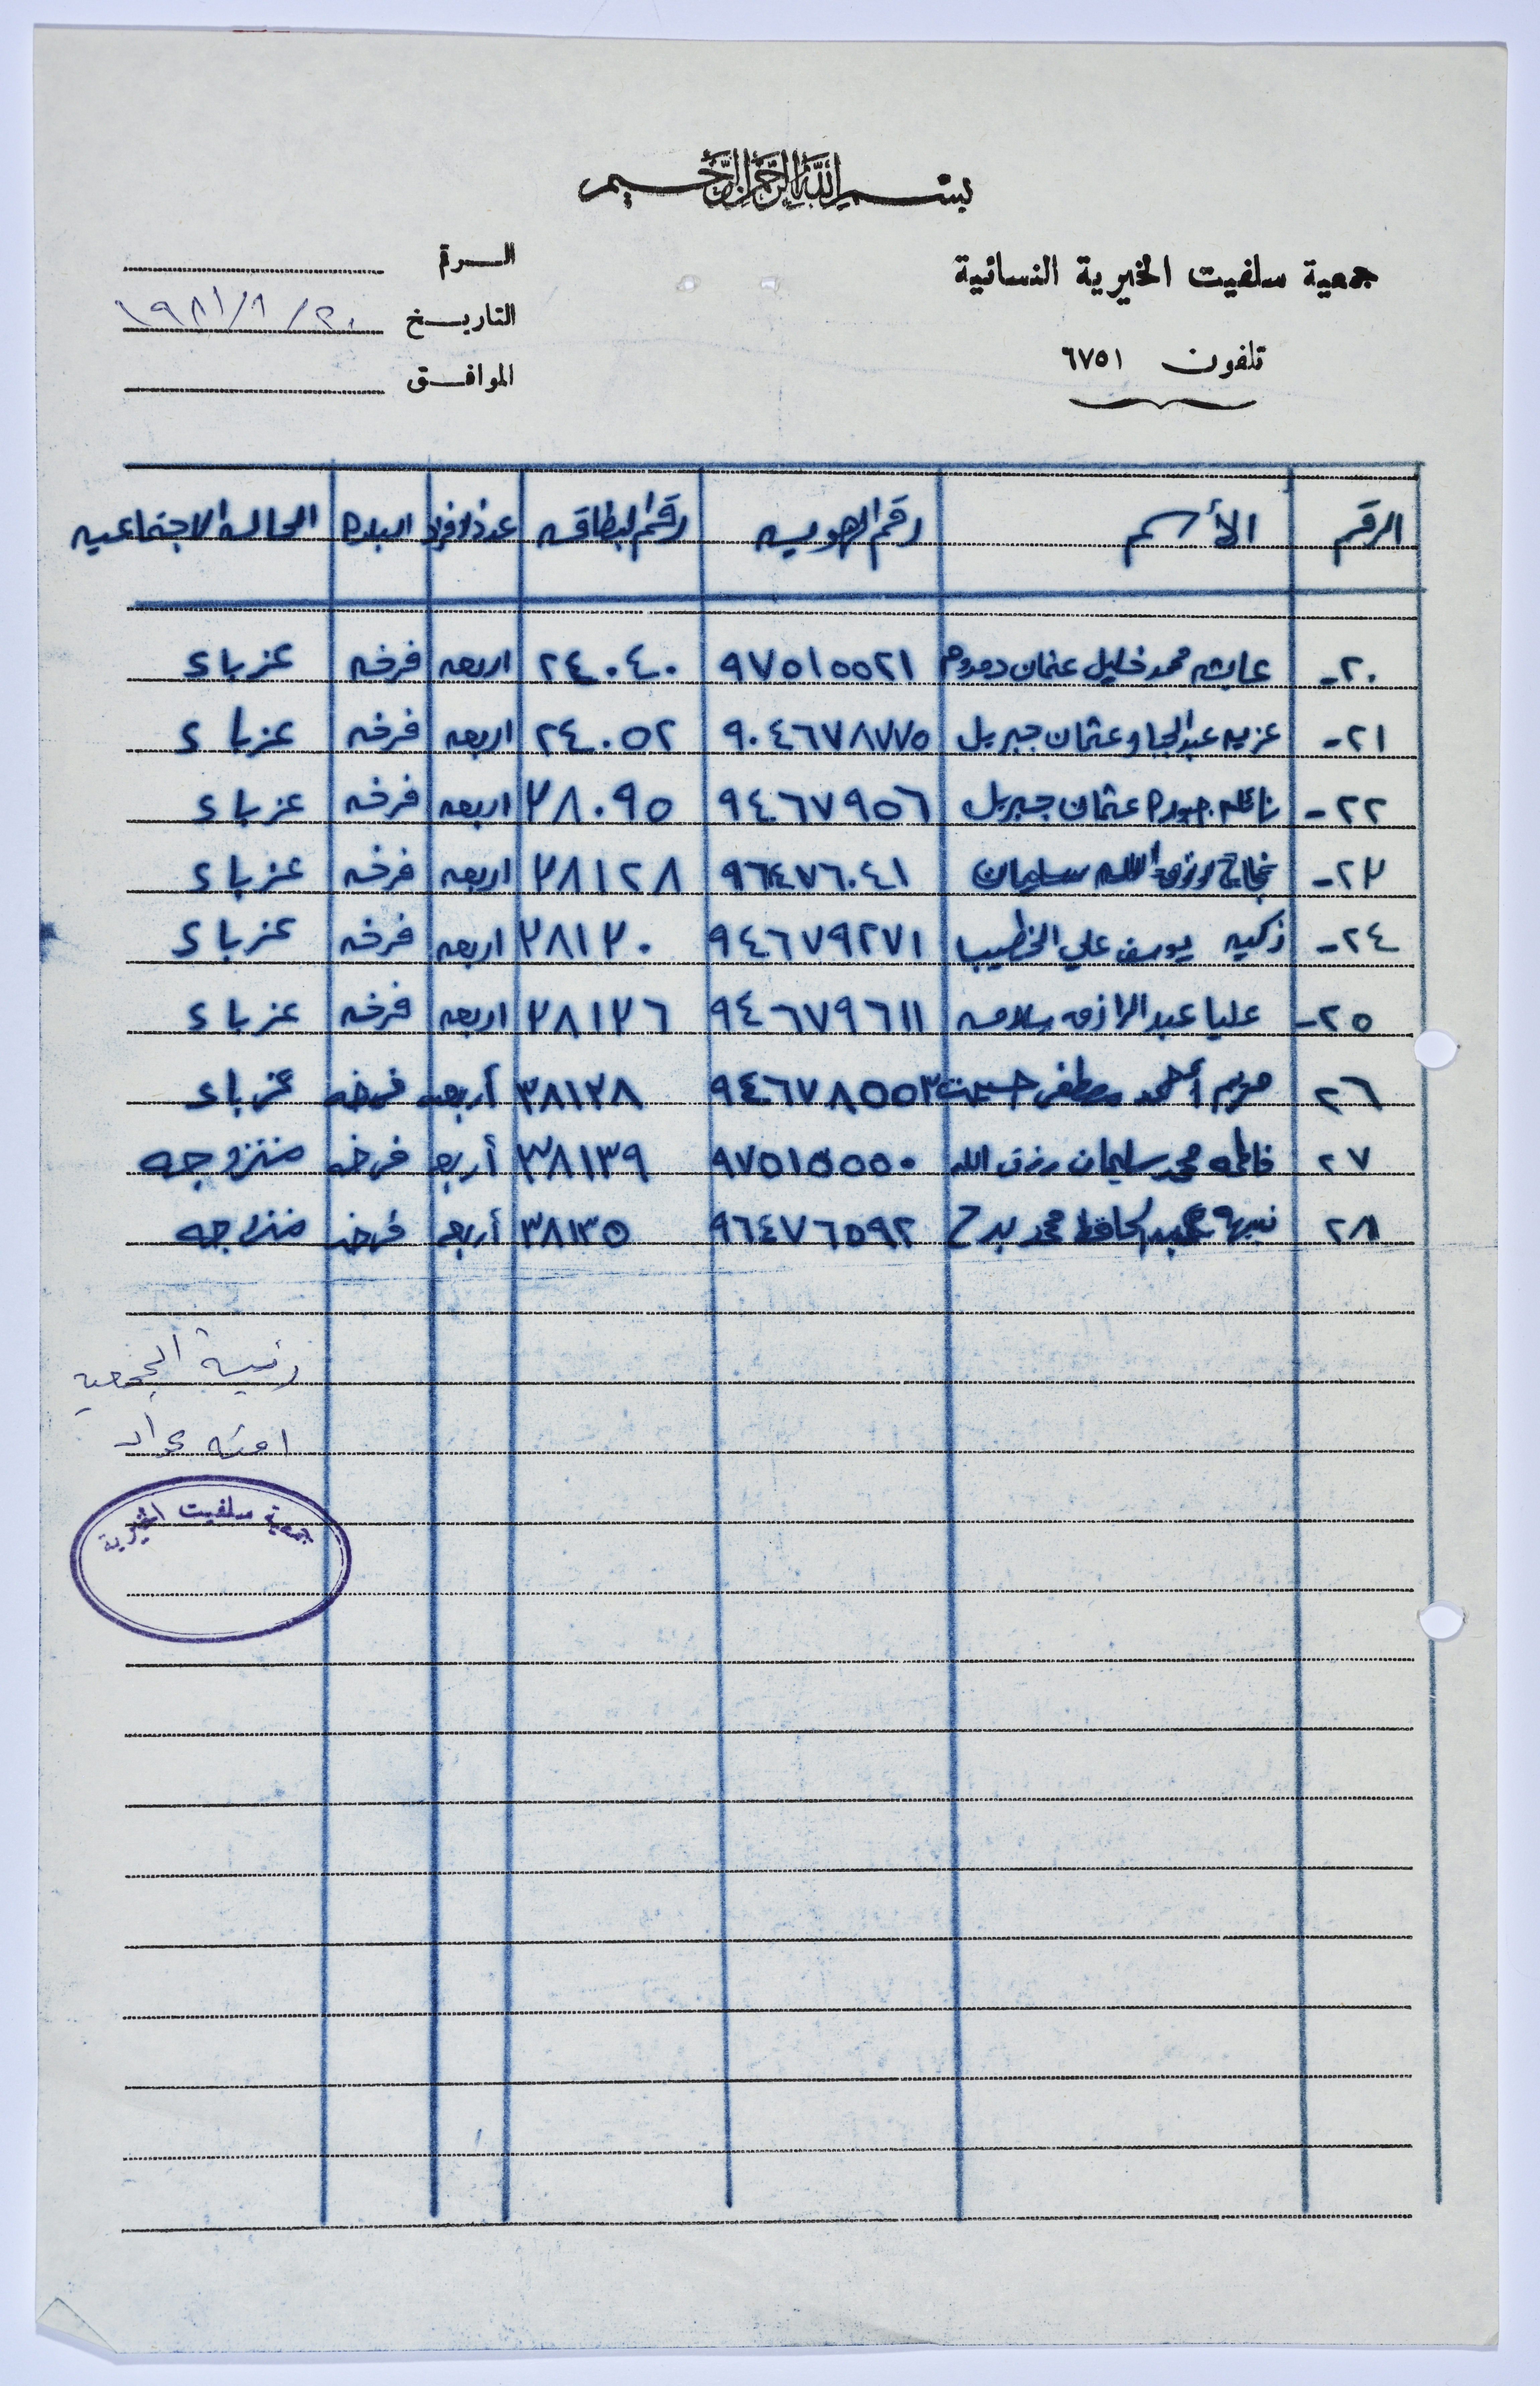 بسم الله الرحمن الرحيم
جمعية سلفيت الخيرية النسائية
تلفون ٦٧٥١
الرقم
التاريخ ٢٠/٨/١٩٨١
الموافق
الرقم الأسم رقم الهويه رقم البطاقه عدد الافراد البلده الحاله الاجتماعيه
٢٠- عايشه محمد خليل عثمان ٩٧٥١٥٥٢١ ٢٤٠٤٠ اربعه فرخه عزباء
٢١- عزيه عبد الجبار عثمان جبريل ٩٠٤٦٧٨٧٧٥ ٢٤٠٥٢ اربعه فرخه عزباء
٢٢- نائله جوده عثمان جبريل ٩٤٦٧٩٥٦ ٣٨٠٩٥ اربعه فرخه عزباء
٢٣- نجاح رزق الله سليمان ٩٦٤٧٦٠٤١ ٣٨١٢٨ اربعه فرخه عزباء
٢٤- زكيه يوسف علي الخطيب ٩٤٦٧٩٢٧١ ٣٨١٣٠ اربعه فرخه عزباء
٢٥- عليا عبد الرازق سلامه ٩٤٦٧٩٦١١ ٣٨١٣٦ اربعه فرخه عزباء
٢٦ مريم أحمد مصطفى حسين ٩٤٦٧٨٥٥٣ ٣٨١٣٨ أربعه فرخه عزباء
٢٧ فاطمه محمد سليمان رزق الله ٩٧٥١٥٥٥٠ ٣٨١٣٩ أربعه فرخه متزوجه
٢٨ نبيهه عبد الحافظ محمد بداح ٩٦٤٧٦٥٩٢ ٣٨١٣٥ أربعه فرخه متزوجه
رئيسة الجمعيه
امنه عواد
جمعية سلفيت الخيرية